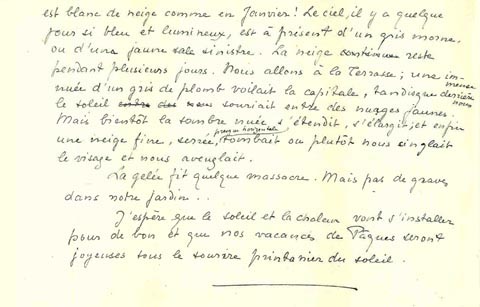 est blanc de neige comme en Janvier! Le ciel, il y a quelque
jour si bleu et lumineux, est à présent d'un gris morne,
ou d'un jaune sale sinistre. La neige continue reste
pendant plusieurs jours. Nous allons à la Terrasse; une immense
nuée d'un gris de plomb voilait la capitale, tandisque derrière nous
le soleil souriait entre des nuages jaunes.
Mais bientôt la sombre nuée s'étendit, s'élargit, et enfin
presque horizontale
une neige fine, serrée, tombait ou plutôt nous cinglait
le visage et nous aveuglait.
La gelée fit quelque massacre. Mais pas de graves
dans notre jardin...
J'espère que le soleil et la chaleur vont s'installer
pour de bon et que nos vacances de Pâques seront
joyeuses sous le sourire printanier du soleil.